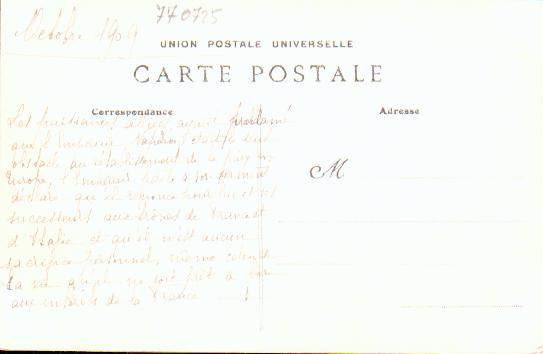 Octobre 1909
770725
UNION POSTALE UNIVERSELLE
CARTE POSTALE
Correspondance
Adresse
M
Les puissances alliées ayant proclamé
que l'Empereur Napoléon était le seul
obstacle au rétablissement de la paix en
Europe, l'Empereur fidèle à son serment
déclare qu'il renonce pour lui et ses
successeurs aux trônes de France et
d'Italie et qu'il n'est aucun
sacrifice personnel, même celui de
la vie qu'il ne soit prêt à faire
aux intérêts de la France